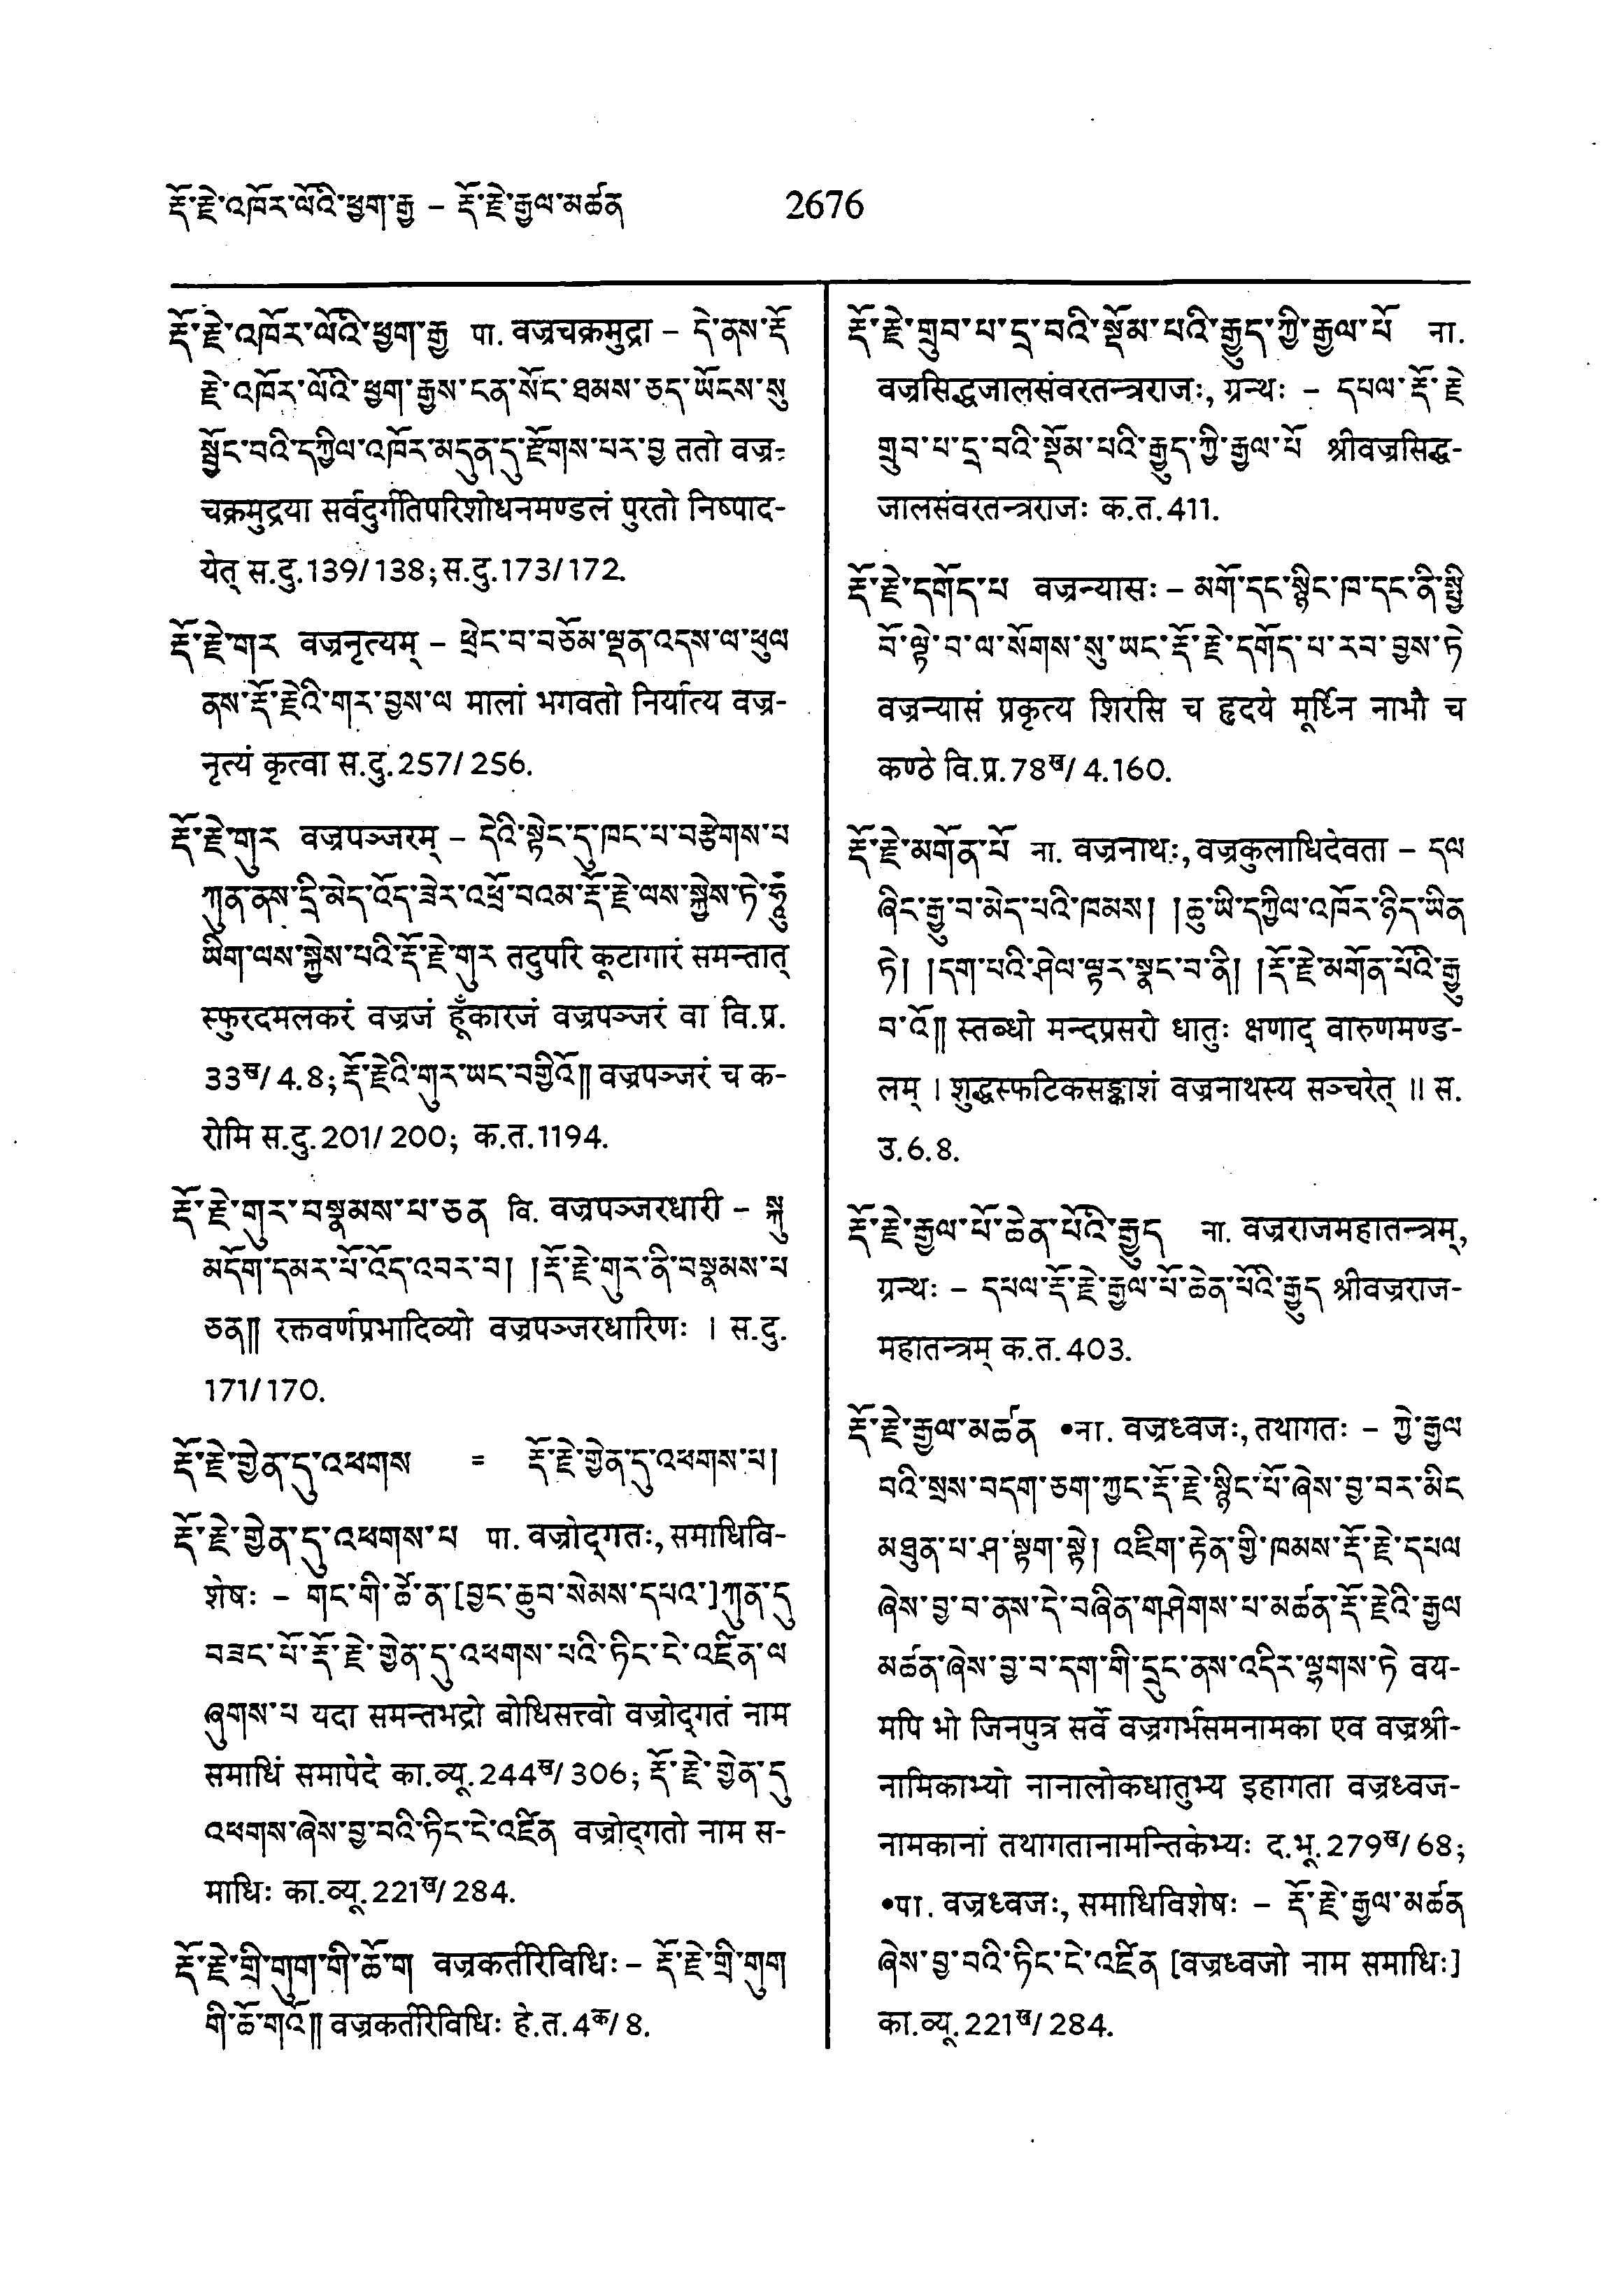 རྡོ་རྗེ་འཁོར་ལོའི་ཕྱག་རྒྱ – རྡོ་རྗེ་རྒྱལ་མཚན 2676
རྡོ་རྗེ་འཁོར་ལོའི་ཕྱག་རྒྱ पा. वज्रचक्रमुद्रा – དེ་ནས་རྡོ
རྗེ་འཁོར་ལོའི་ཕྱག་རྒྱས་ངན་སོང་ཐམས་ཅད་ཡོངས་སུ
སྦྱོང་བའི་དཀྱིལ་འཁོར་མདུན་དུ་རྫོགས་པར་བྱ ततो वज्र-
चक्रमुद्रया सर्वदुर्गतिपरिशोधनमण्डलं पुरतो निष्पाद-
येत् स.दु.139/138;स.दु.173/172.
རྡོ་རྗེ་གར वज्रनृत्यम् – ཕྲེང་བ་བཅོམ་ལྡན་འདས་ལ་ཕུལ
ནས་རྡོ་རྗེའི་གར་བྱས་ལ मालां भगवतो निर्यात्य वज्र-
नृत्यं कृत्वा स.दु.257/256.
རྡོ་རྗེ་གུར वज्रपञ्जरम् – དེའི་སྟེང་དུ་ཁང་པ་བརྩེགས་པ
ཀུན་ནས་དྲི་མེད་འོད་ཟེར་འཕྲོ་བའམ་རྡོ་རྗེ་ལས་སྐྱེས་ཏེ་ཧཱུྃ
ཡིག་ལས་སྐྱེས་པའི་རྡོ་རྗེ་གུར तदुपरि कूटागारं समन्तात्
स्फुरदमलकरं वज्रजं हूँकारजं वज्रपञ्जरं वा वि.प्र.
33ख/4.8;རྡོ་རྗེའི་གུར་ཡང་བགྱིའོ།། वज्रपञ्जरं च क-
रोमि स.दु.201/200; क.त.1194.
རྡོ་རྗེ་གུར་བསྣམས་པ་ཅན वि. वज्रपञ्जरधारी – སྐུ
མདོག་དམར་པོ་འོད་འབར་བ། །རྡོ་རྗེ་གུར་ནི་བསྣམས་པ
ཅན།། रक्तवर्णप्रभादिव्यो वज्रपञ्जरधारिणः । स.दु.
171/170.
རྡོ་རྗེ་གྱེན་དུ་འཕགས = རྡོ་རྗེ་གྱེན་དུ་འཕགས་པ།
རྡོ་རྗེ་གྱེན་དུ་འཕགས་པ पा. वज्रोद्गतः, समाधिवि-
शेषः – གང་གི་ཚེ་ན་[བྱང་ཆུབ་སེམས་དཔའ་]ཀུན་དུ
བཟང་པོ་རྡོ་རྗེ་གྱེན་དུ་འཕགས་པའི་ཏིང་ངེ་འཛིན་ལ
ཞུགས་པ यदा समन्तभद्रो बोधिसत्त्वो वज्रोद्गतं नाम
समाधिं समापेदे का.व्यू.244ख/306; རྡོ་རྗེ་གྱེན་དུ
འཕགས་ཞེས་བྱ་བའི་ཏིང་ངེ་འཛིན वज्रोद्गतो नाम स-
माधिः का.व्यू.221ख/284.
རྡོ་རྗེ་གྲི་གུག་གི་ཆོ་ག वज्रकर्तरिविधिः – རྡོ་རྗེ་གྲི་གུག
གི་ཆོ་གའོ།། वज्रकर्तरिविधिः हे.त.4क/8.
རྡོ་རྗེ་གྲུབ་པ་དྲ་བའི་སྡོམ་པའི་རྒྱུད་ཀྱི་རྒྱལ་པོ ना.
वज्रसिद्धजालसंवरतन्त्रराजः, ग्रन्थः – དཔལ་རྡོ་རྗེ
གྲུབ་པ་དྲ་བའི་སྡོམ་པའི་རྒྱུད་ཀྱི་རྒྱལ་པོ श्रीवज्रसिद्ध-
जालसंवरतन्त्रराजः क.त.411.
རྡོ་རྗེ་དགོད་པ वज्रन्यासः – མགོ་དང་སྙིང་ཁ་དང་ནི་སྤྱི
བོ་ལྟེ་བ་ལ་སོགས་སུ་ཡང་རྡོ་རྗེ་དགོད་པ་རབ་བྱས་ཏེ
वज्रन्यासं प्रकृत्य शिरसि च हृदये मूर्ध्नि नाभौ च
कण्ठे वि.प्र.78ख/4.160.
རྡོ་རྗེ་མགོན་པོ ना. वज्रनाथः, वज्रकुलाधिदेवता – དལ
ཞིང་རྒྱུ་བ་མེད་པའི་ཁམས། །ཆུ་ཡི་དཀྱིལ་འཁོར་ཉིད་ཡིན
ཏེ། །དག་པའི་ཤེལ་ལྟར་སྣང་བ་ནི། །རྡོ་རྗེ་མགོན་པོའི་རྒྱུ
བ་འོ།། स्तब्धो मन्दप्रसरो धातुः क्षणाद् वारुणमण्ड-
लम् । शुद्धस्फटिकसङ्काशं वज्रनाथस्य सञ्चरेत् ॥ स.
उ.6.8.
རྡོ་རྗེ་རྒྱལ་པོ་ཆེན་པོའི་རྒྱུད ना. वज्रराजमहातन्त्रम्,
ग्रन्थः – དཔལ་རྡོ་རྗེ་རྒྱལ་པོ་ཆེན་པོའི་རྒྱུད श्रीवज्रराज-
महातन्त्रम् क.त.403.
རྡོ་རྗེ་རྒྱལ་མཚན •ना. वज्रध्वजः, तथागतः – ཀྱེ་རྒྱལ
བའི་སྲས་བདག་ཅག་ཀྱང་རྡོ་རྗེ་སྙིང་པོ་ཞེས་བྱ་བར་མིང
མཐུན་པ་ཤ་སྟག་སྟེ། འཇིག་རྟེན་གྱི་ཁམས་རྡོ་རྗེ་དཔལ
ཞེས་བྱ་བ་ནས་དེ་བཞིན་གཤེགས་པ་མཚན་རྡོ་རྗེའི་རྒྱལ
མཚན་ཞེས་བྱ་བ་དག་གི་དྲུང་ནས་འདིར་ལྷགས་ཏེ वय-
मपि भो जिनपुत्र सर्वे वज्रगर्भसमनामका एव वज्रश्री-
नामिकाभ्यो नानालोकधातुभ्य इहागता वज्रध्वज-
नामकानां तथागतानामन्तिकेभ्यः द.भू.279ख/68;
•पा. वज्रध्वजः, समाधिविशेषः – རྡོ་རྗེ་རྒྱལ་མཚན
ཞེས་བྱ་བའི་ཏིང་ངེ་འཛིན [वज्रध्वजो नाम समाधिः]
का.व्यू.221ख/284.